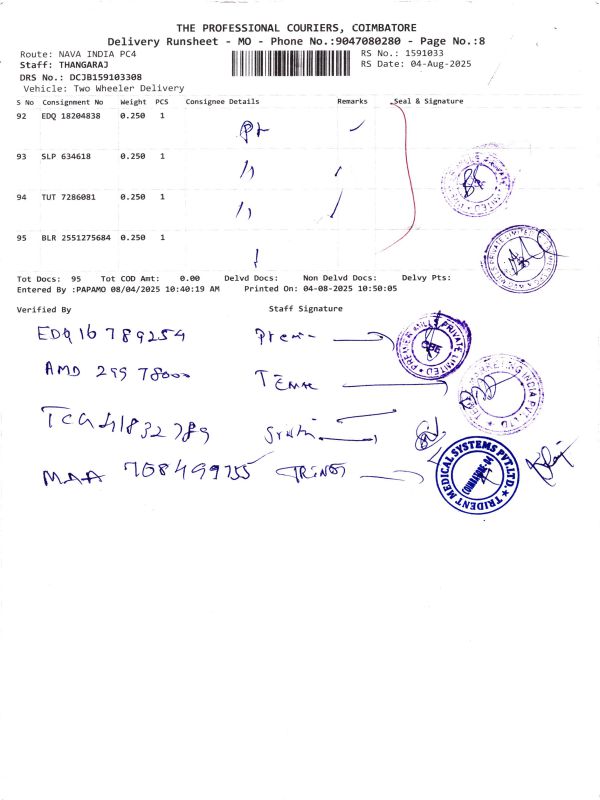 THE PROFESSIONAL COURIERS, COIMBATORE
Delivery Runsheet - MO - Phone No.:9047080280 - Page No.:8
Route: NAVA INDIA PC4 RS No.: 1591033
Staff: THANGARAJ RS Date: 04-Aug-2025
DRS No.: DCJB159103308
Vehicle: Two Wheeler Delivery
S No Consignment No Weight PCS Consignee Details Remarks Seal & Signature
92 EDQ 18204838 0.250 1
93 SLP 634618 0.250 1
94 TUT 7286081 0.250 1
95 BLR 2551275684 0.250 1
Tot Docs: 95 Tot COD Amt: 0.00 Delvd Docs: Non Delvd Docs: Delvy Pts:
Entered By :PAPAMO 08/04/2025 10:40:19 AM Printed On: 04-08-2025 10:50:05
Verified By Staff Signature
EDQ 16789254
PREMIER MILLS PRIVATE LIMITED
AMD 299 78000
TCG 41832789
MAA 708499755
TRIDENT MEDICAL SYSTEMS PVT.LTD.